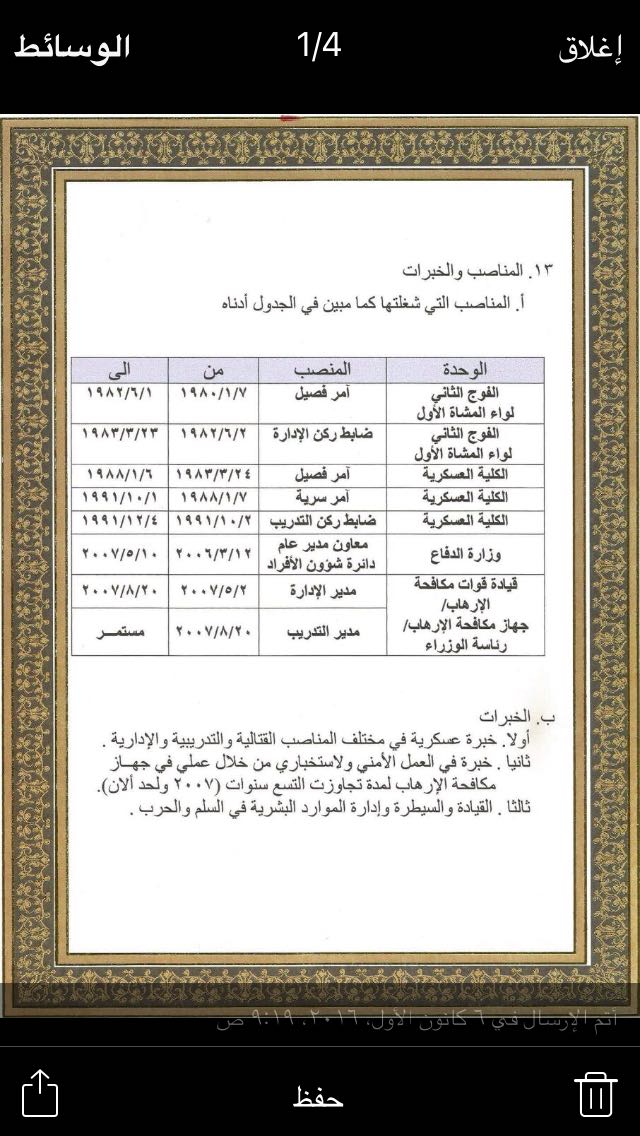 إغلاق
1/4
الوسائط
١٣. المناصب والخبرات
أ. المناصب التي شغلتها كما مبين في الجدول أدناه
الوحدة المنصب من الى
الفوج الثاني آمر فصيل ١٩٨٠/١/٧ ١٩٨٢/٦/١
لواء المشاة الأول
الفوج الثاني ضابط ركن الإدارة ١٩٨٢/٦/٢ ١٩٨٣/٣/٢٣
لواء المشاة الأول
الكلية العسكرية آمر فصيل ١٩٨٣/٣/٢٤ ١٩٨٨/١/٦
الكلية العسكرية آمر سرية ١٩٨٨/١/٧ ١٩٩١/١٠/١
الكلية العسكرية ضابط ركن التدريب ١٩٩١/١٠/٢ ١٩٩١/١٢/٤
وزارة الدفاع معاون مدير عام ٢٠٠٦/٣/١٢ ٢٠٠٧/٥/١٠
دائرة شؤون الأفراد
قيادة قوات مكافحة مدير الإدارة ٢٠٠٧/٥/٢ ٢٠٠٧/٨/٢٠
الإرهاب/
جهاز مكافحة الإرهاب/ مدير التدريب ٢٠٠٧/٨/٢٠ مستمـــر
رئاسة الوزراء
ب. الخبرات
أولا. خبرة عسكرية في مختلف المناصب القتالية والتدريبية والإدارية .
ثانيا . خبرة في العمل الأمني ولاستخباري من خلال عملي في جهـاز
مكافحة الإرهاب لمدة تجاوزت التسع سنوات (٢٠٠٧ ولحد ألان).
ثالثا . القيادة والسيطرة وإدارة الموارد البشرية في السلم والحرب .
أتم الإرسال في ٦ كانون الأول، ٢٠١٦، ٩:١٩ ص
حفظ